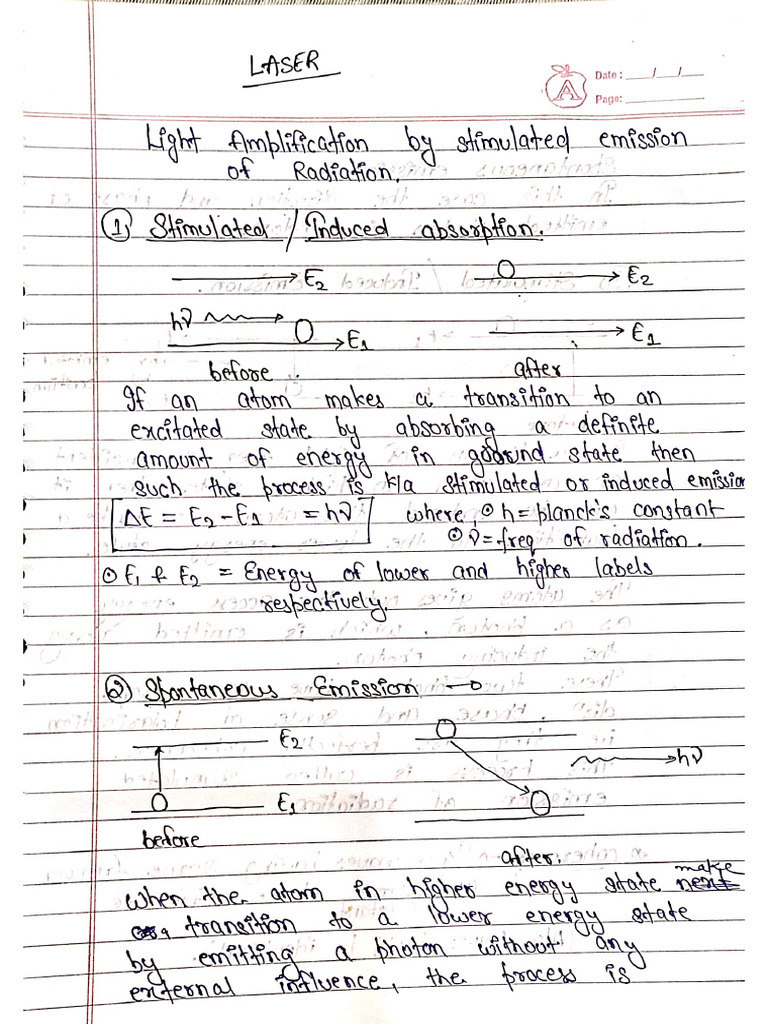 LASER
Date: / /
Page:
Light Amplification by stimulated emission
of Radiation.
① Stimulated / Induced absorption.
E2
E2
hν
E1
E1
before
after
If an atom makes a transition to an
excitated state by absorbing a definite
amount of energy in goound state then
such the process is k/a stimulated or induced emission
ΔE = E2-E1 = hν where, ⊙ h = planck's constant
⊙ ν = freq of radiation.
⊙ E1 & E2 = Energy of lower and higher labels
respectively.
② Spontaneous Emission
E2
hν
E1
before
after.
make
when the atom in higher energy state
transition to a lower energy state
by emitting a photon without any
external influence, the process is